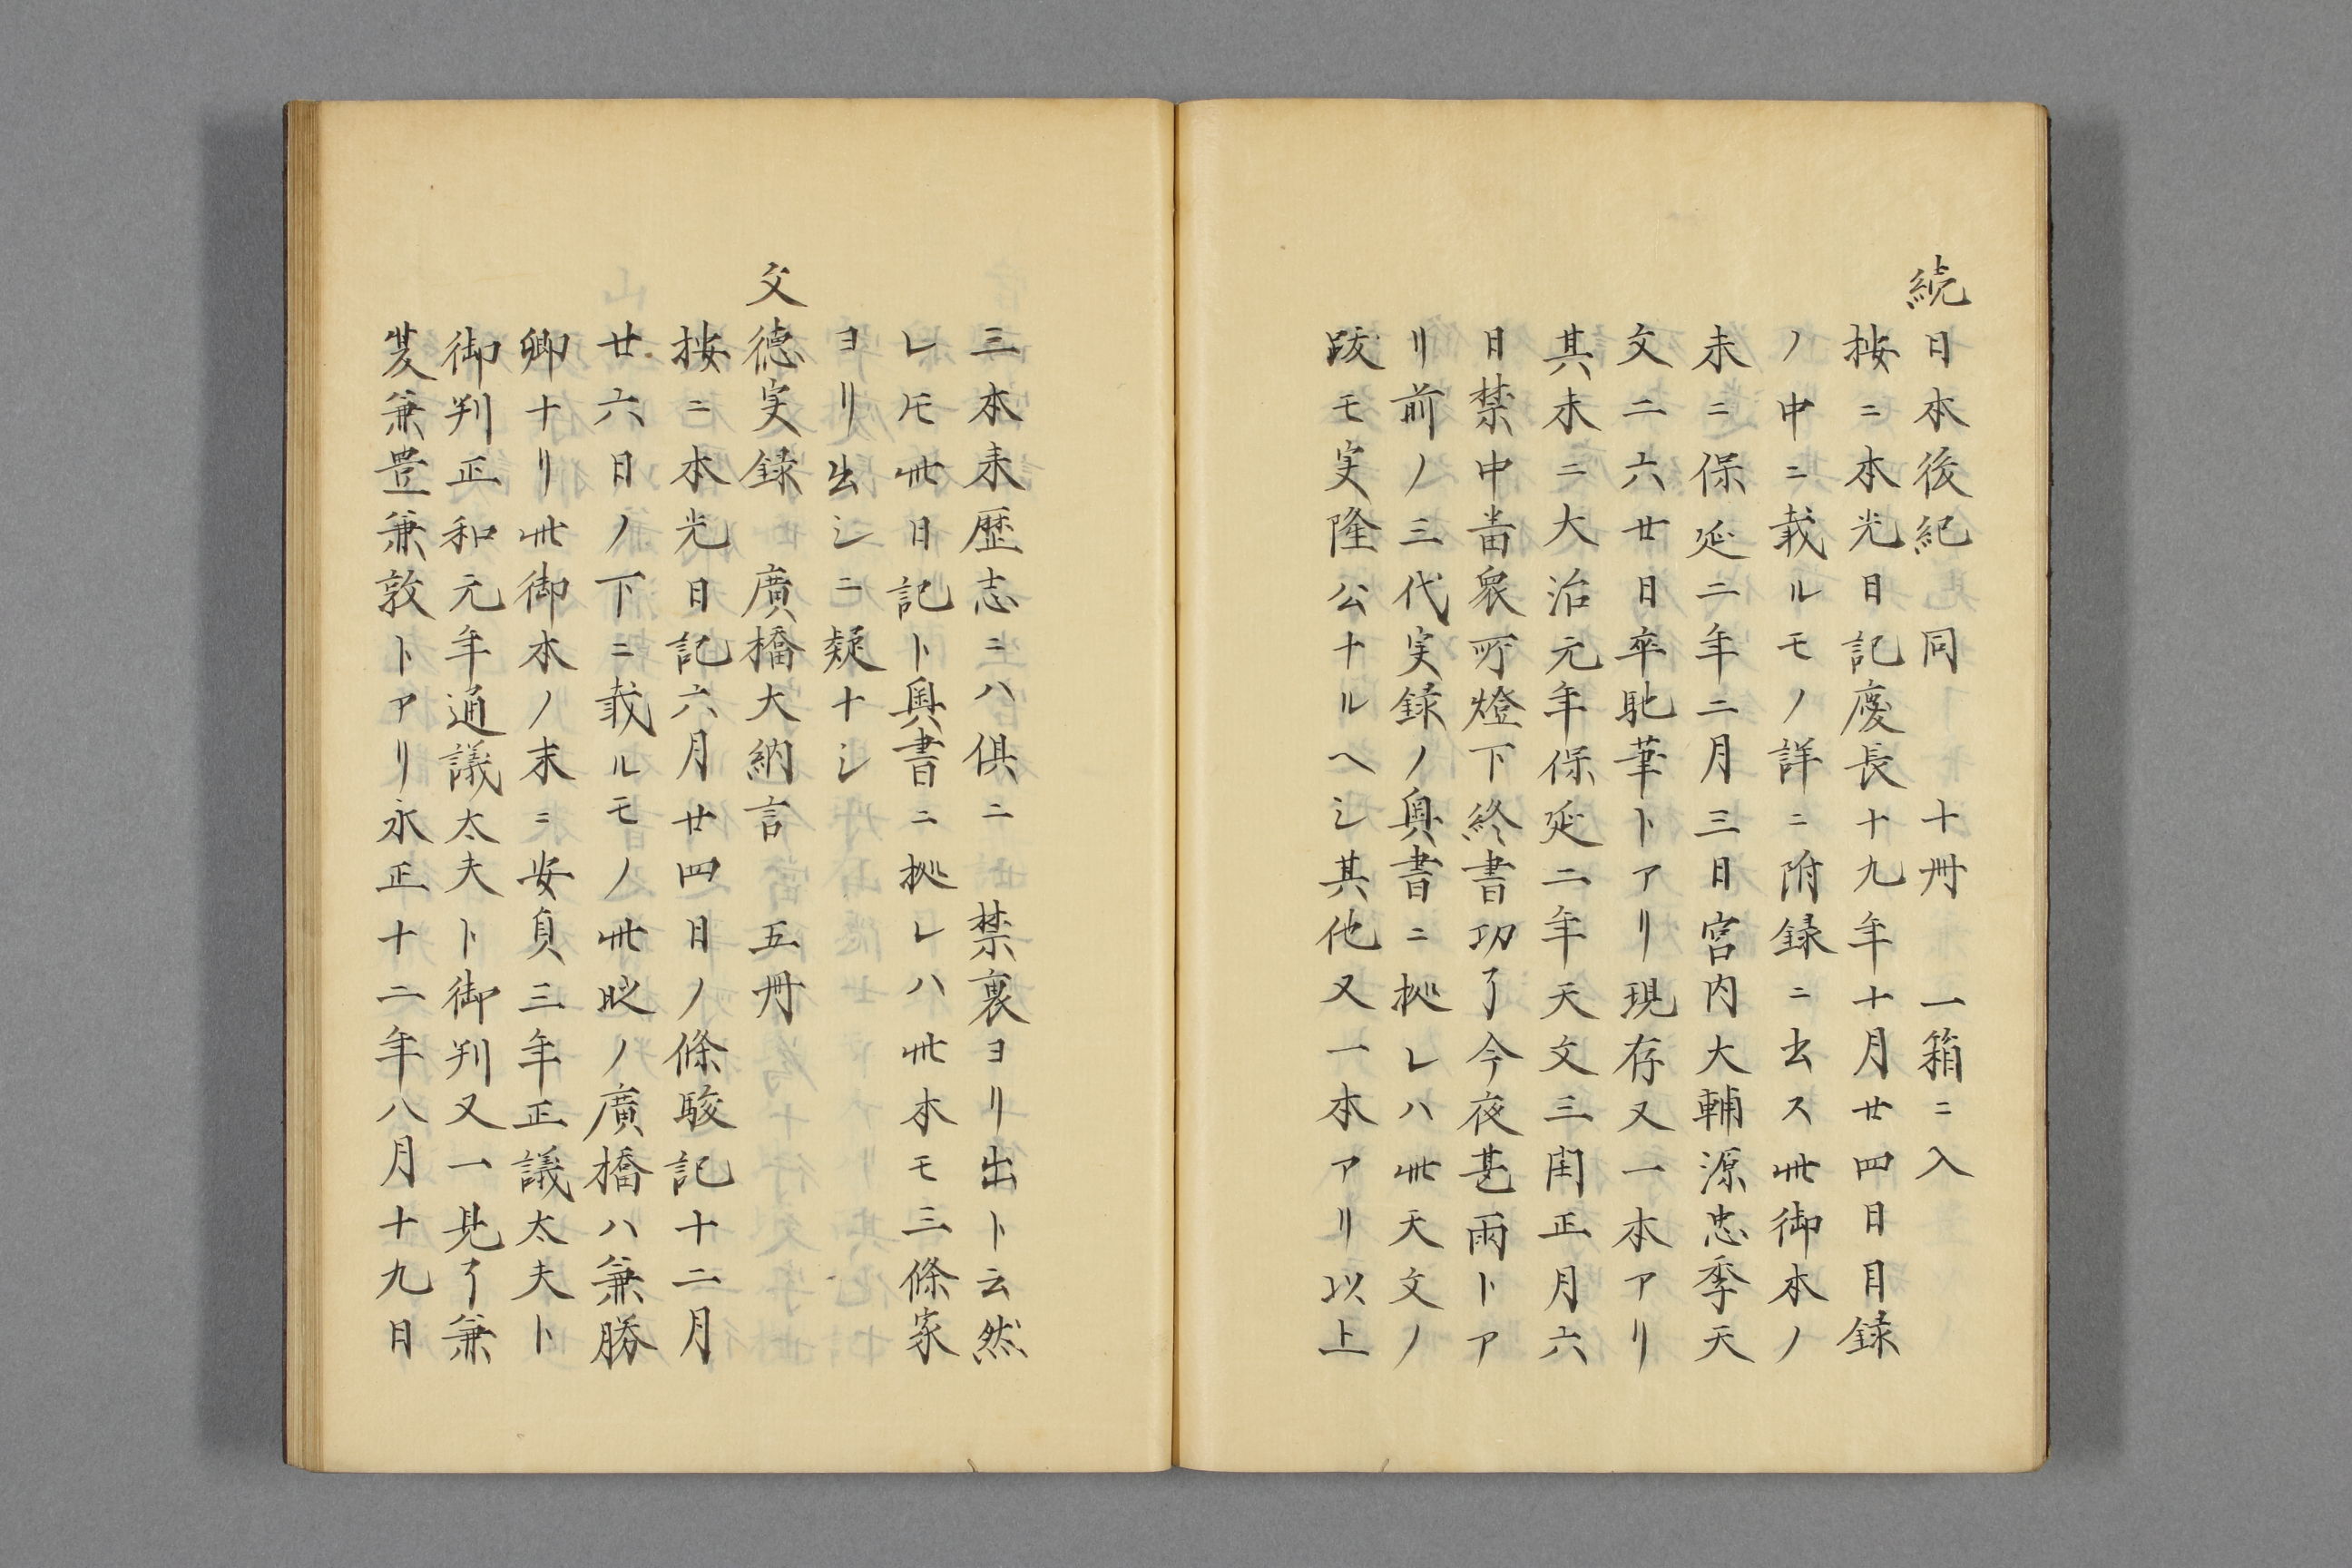 続日本後紀同 十冊 一箱ニ入
按ニ本光日記慶長十九年十月廿四日目録
ノ中ニ載ルモノ詳ニ附録ニ出ス此御本ノ
末ニ保延二年二月三日宮内大輔源忠季天
文二六廿日卒馳筆トアリ現存又一本アリ
其末ニ大治元年保延二年天文三閏正月六
日禁中畨衆所燈下終書功了今夜甚雨トア
リ前ノ三代実録ノ奥書ニ拠レハ此天文ノ
跋モ実隆公ナルヘシ其他又一本アリ以上
三本来歴志ニハ倶ニ禁裏ヨリ出ト云然
レ𪜈此日記ト奥書ニ拠レハ此本モ三條家
ヨリ出シニ疑ナシ
文徳実録 廣橋大納言 五冊
按ニ本光日記六月廿四日ノ條駿記十二月
廿六日ノ下ニ載ルモノ此時ノ廣橋ハ兼勝
卿ナリ此御本ノ末ニ安貞三年正議太夫ト
御判正和元年通議太夫ト御判又一見了兼
兼豊兼敦トアリ永正十二年八月十九日